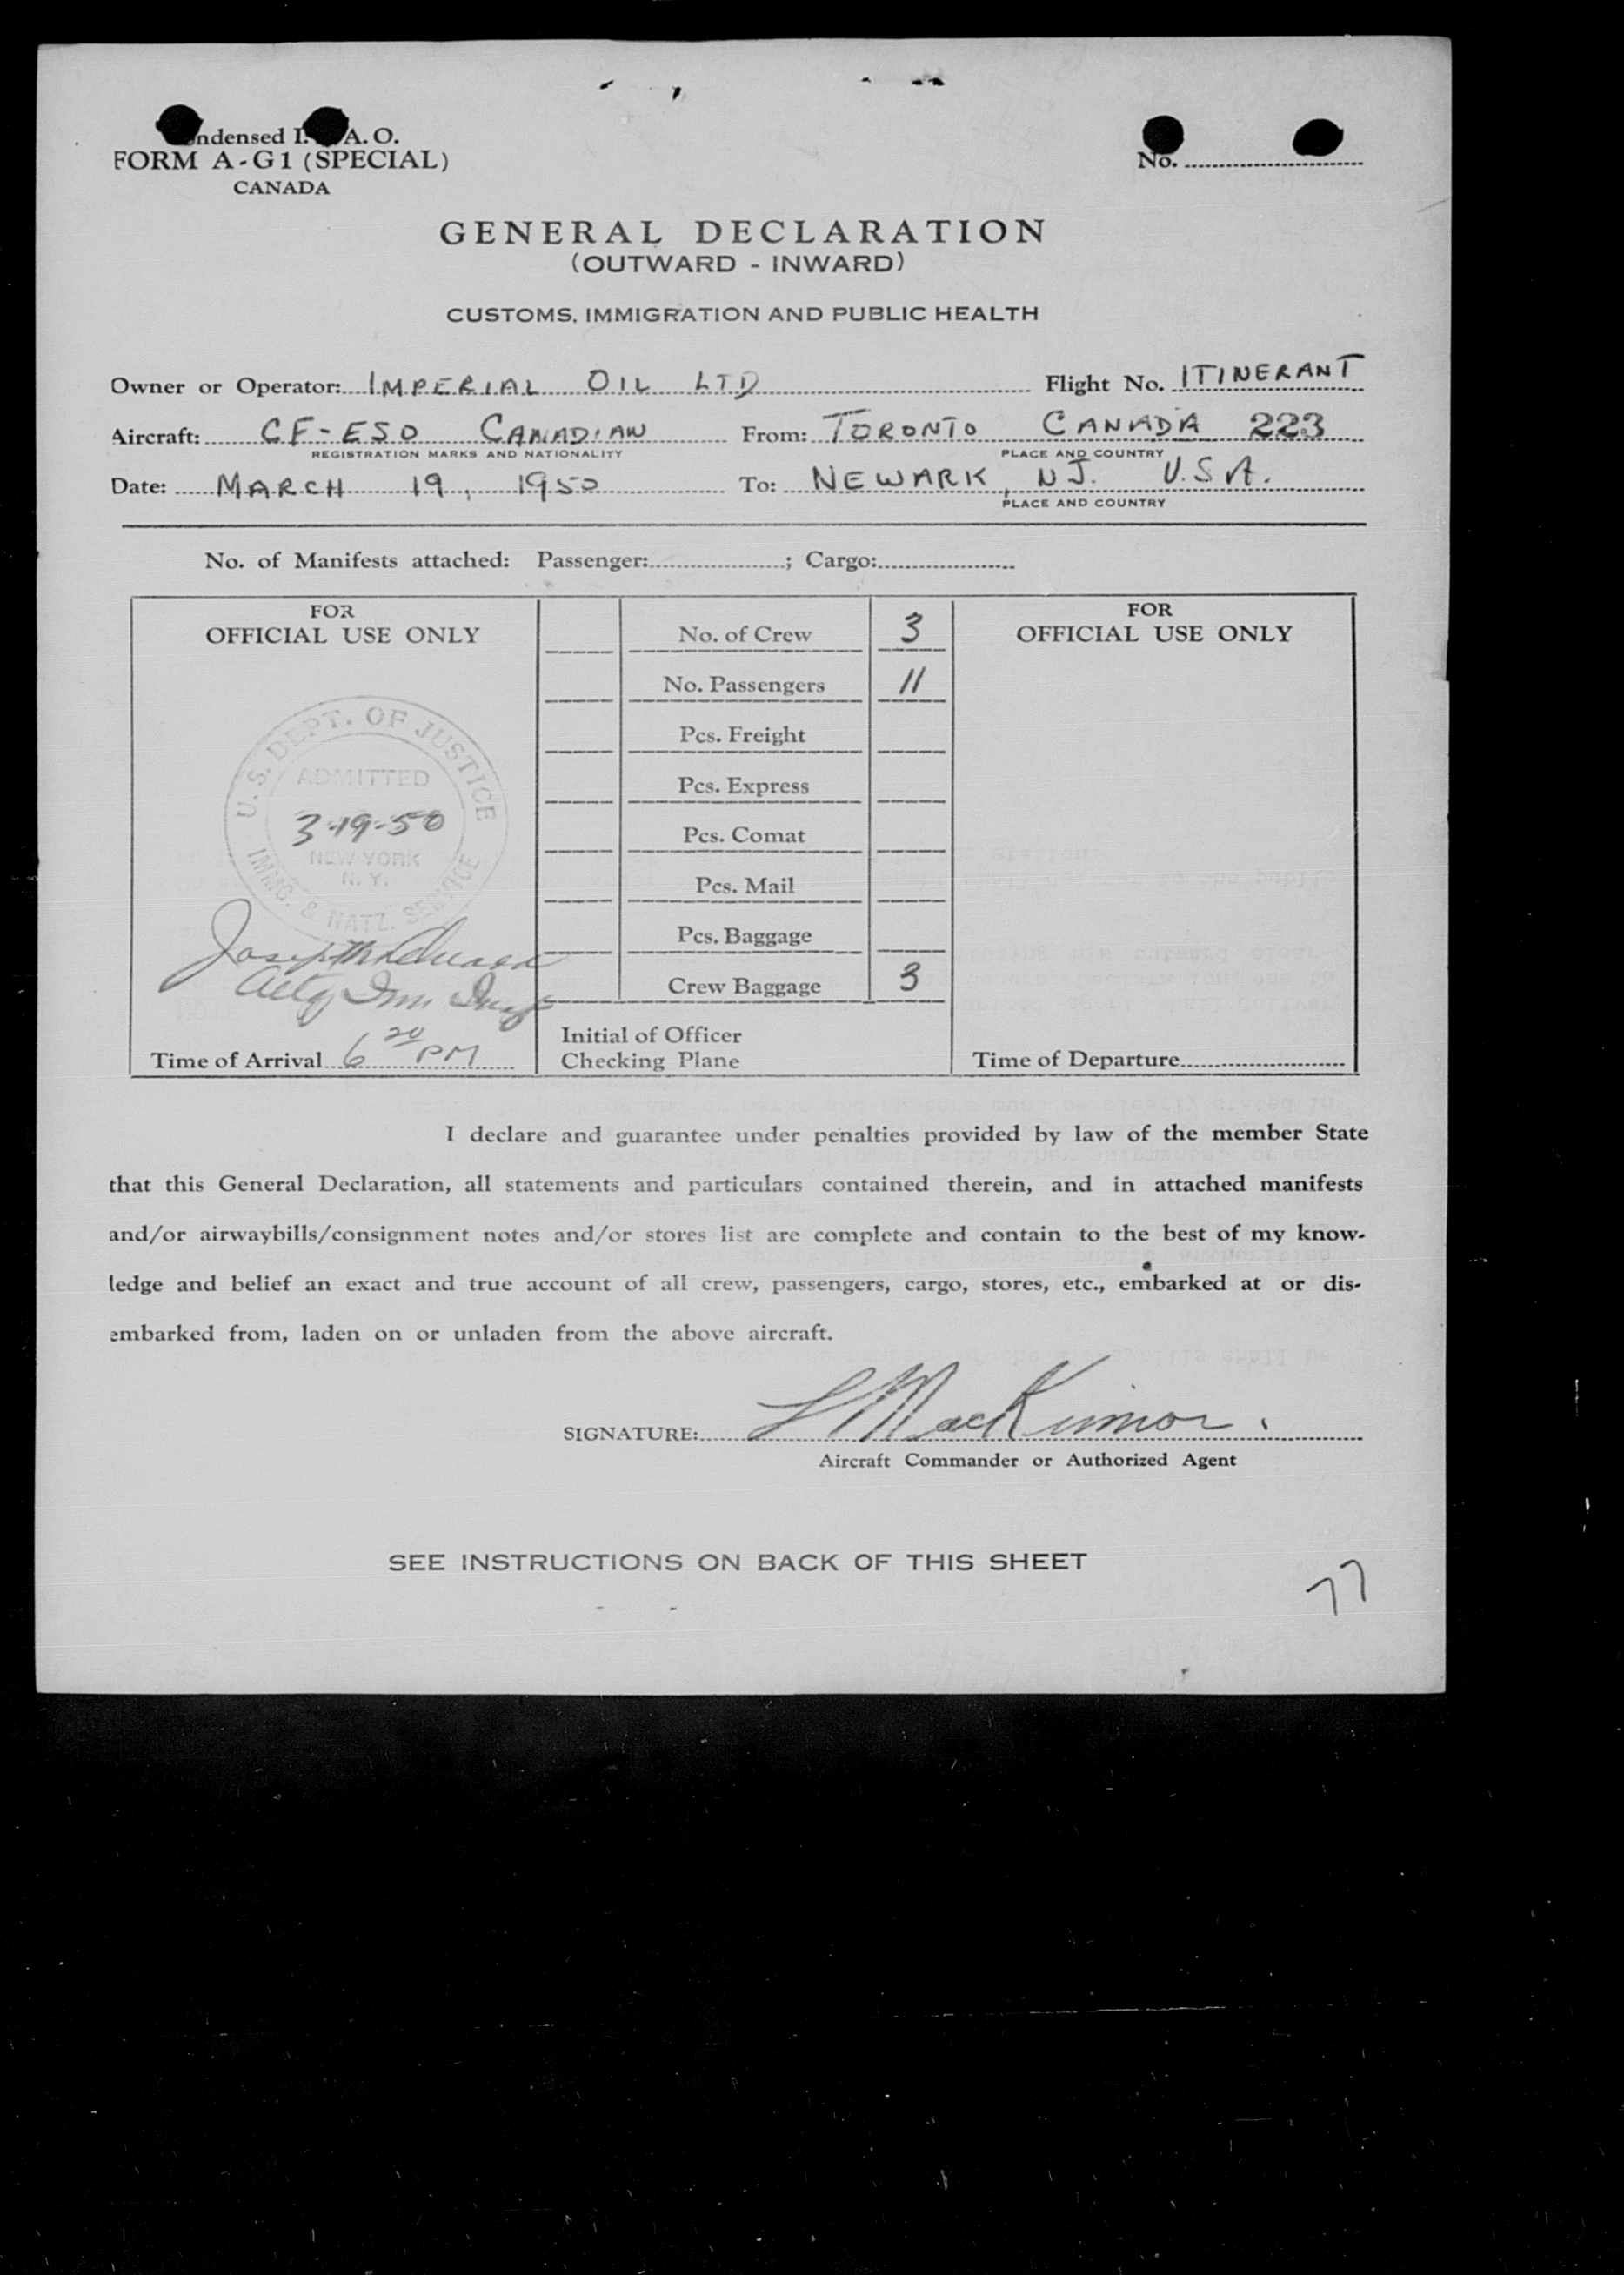 ndensed I. A. O.
FORM A-G1 (SPECIAL)
CANADA
No.
GENERAL DECLARATION
(OUTWARD - INWARD)
CUSTOMS, IMMIGRATION AND PUBLIC HEALTH
Owner or Operator: IMPERIAL OIL LTD Flight No. ITINERANT
Aircraft: CF-ESO CANADIAN From: TORONTO CANADA 223
REGISTRATION MARKS AND NATIONALITY PLACE AND COUNTRY
Date: MARCH 19, 1950 To: NEWARK, NJ. U.S.A.
PLACE AND COUNTRY
No. of Manifests attached: Passenger: ; Cargo:
FOR
OFFICIAL USE ONLY
U. S. DEPT. OF JUSTICE
ADMITTED
3-19-50
NEW YORK
N. Y.
IMMG. & NATZ. SERVICE
Joseph
Actg Imm
Time of Arrival 6 20 PM
No. of Crew 3
No. Passengers 11
Pcs. Freight
Pcs. Express
Pcs. Comat
Pcs. Mail
Pcs. Baggage
Crew Baggage 3
Initial of Officer
Checking Plane
FOR
OFFICIAL USE ONLY
Time of Departure
I declare and guarantee under penalties provided by law of the member State
that this General Declaration, all statements and particulars contained therein, and in attached manifests
and/or airwaybills/consignment notes and/or stores list are complete and contain to the best of my know-
ledge and belief an exact and true account of all crew, passengers, cargo, stores, etc., embarked at or dis-
embarked from, laden on or unladen from the above aircraft.
SIGNATURE: L MacKinnon.
Aircraft Commander or Authorized Agent
SEE INSTRUCTIONS ON BACK OF THIS SHEET
77